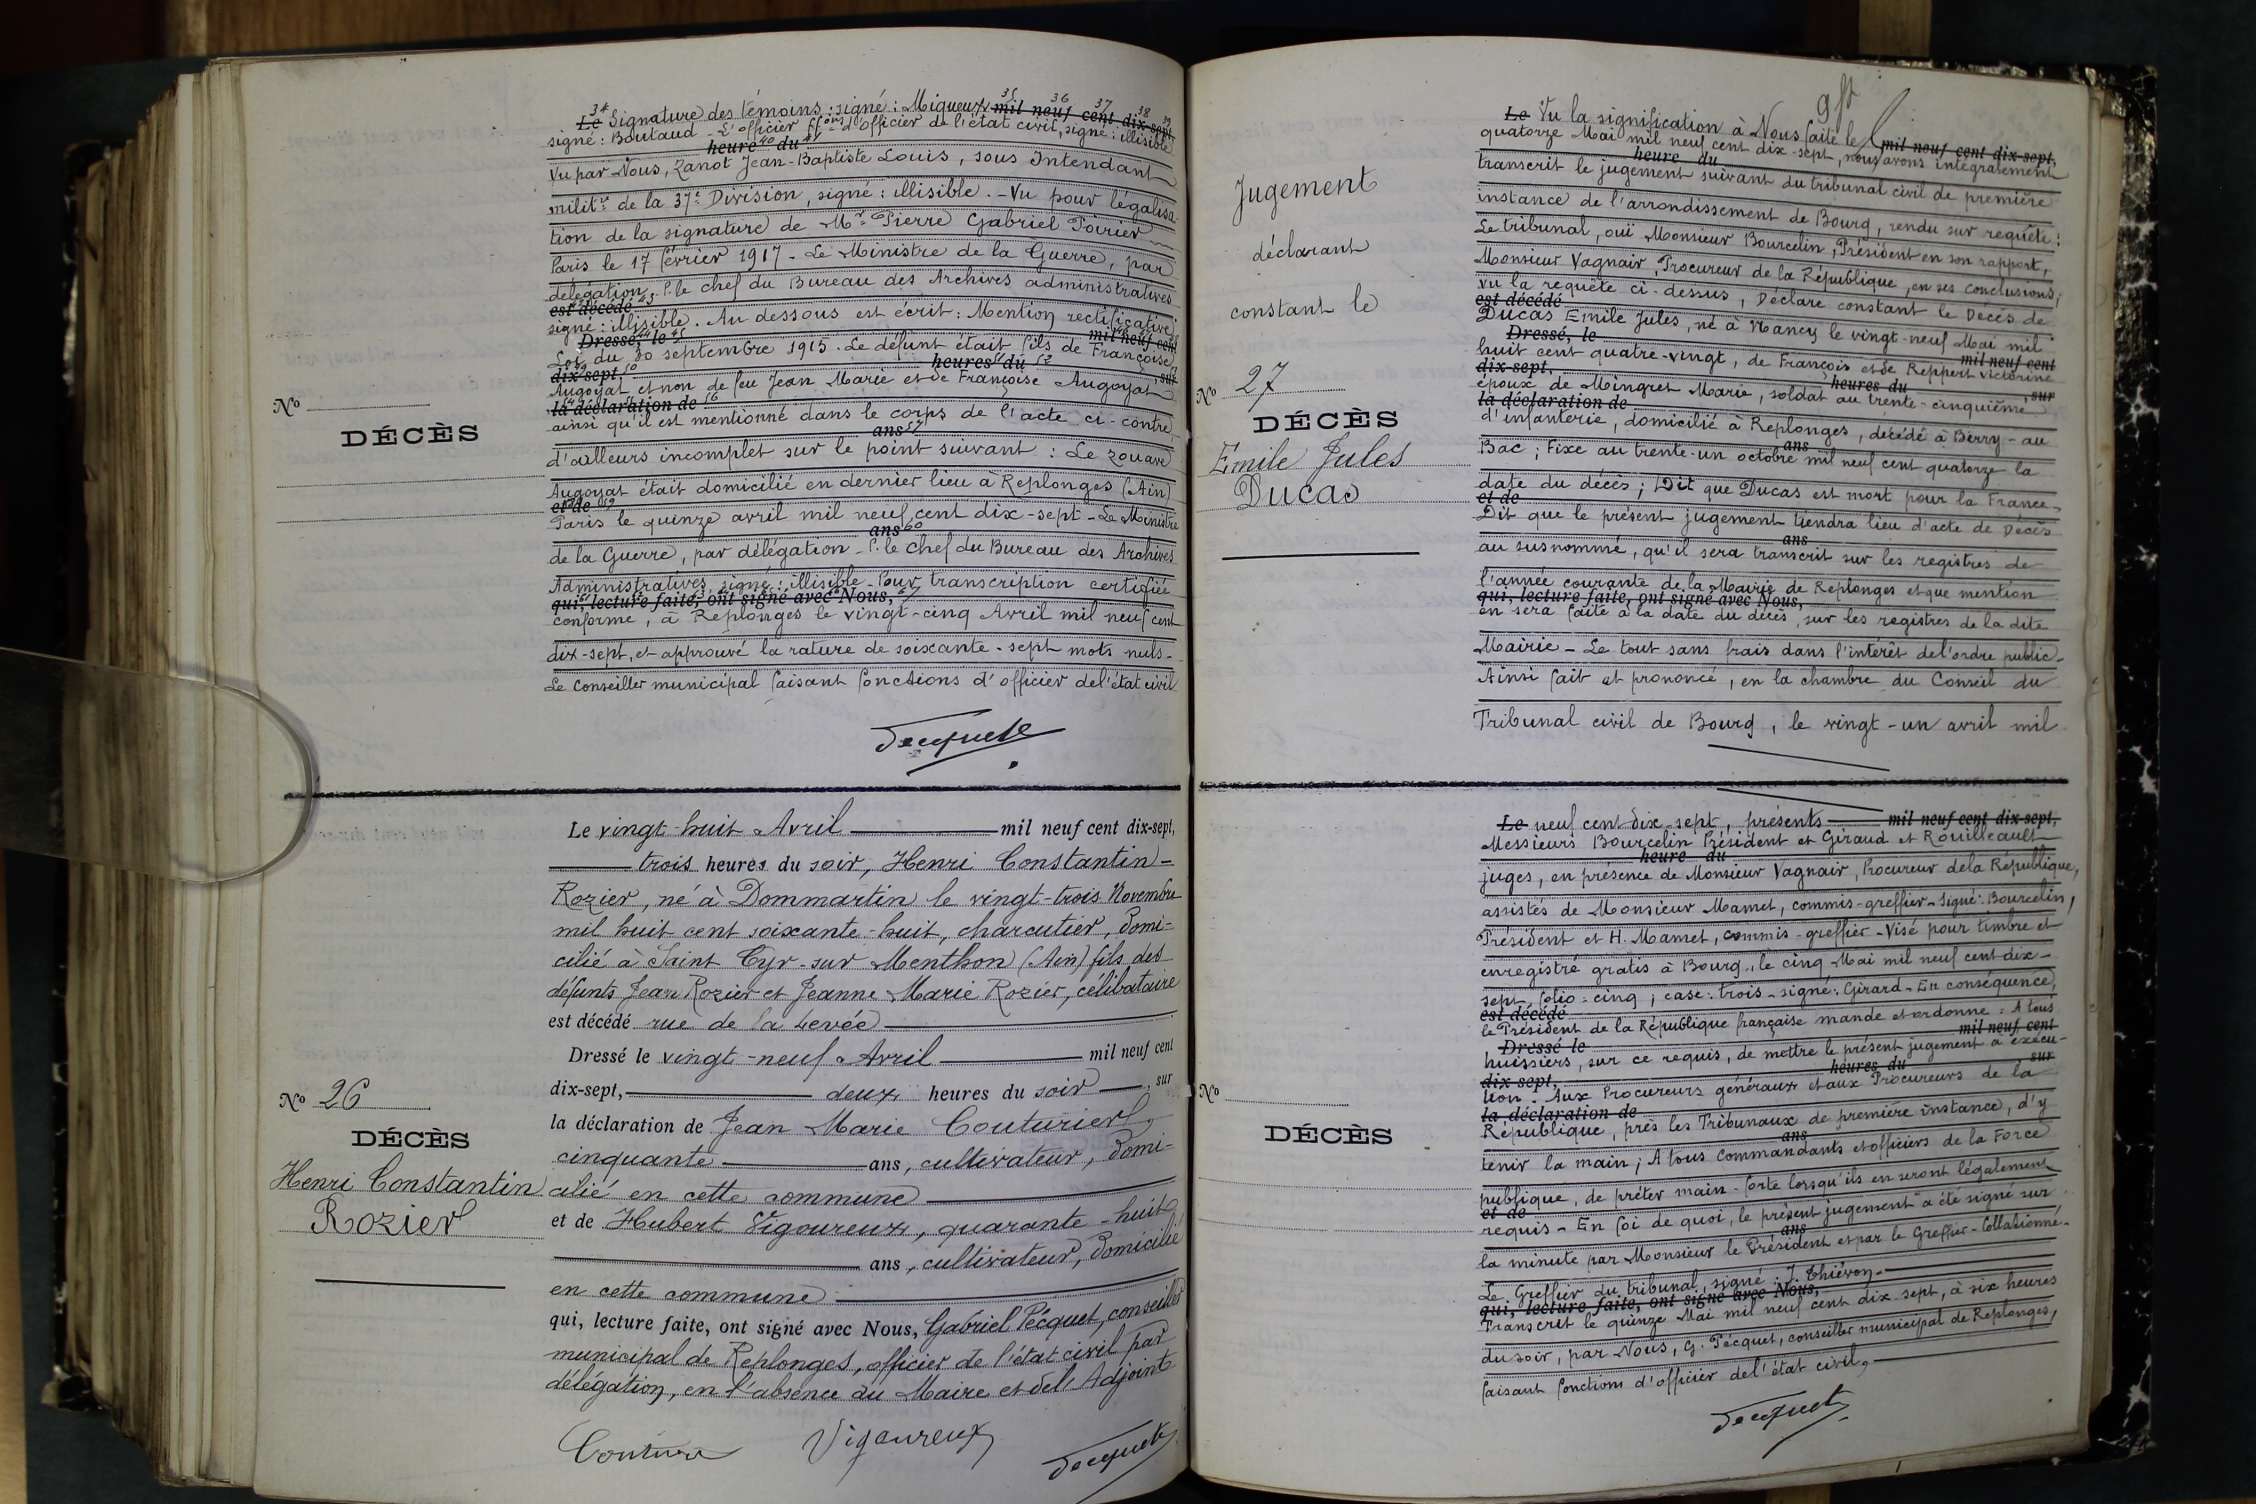 Le Signature des témoins : signé : Migueux mil neuf cent dix-sept,
signé : Boutaud - L'officier ff.ons d'officier de l'état civil, signé : illisible
heure du
Vu par Nous, Zanot Jean-Baptiste Louis, sous Intendant
milit.re de la 37e Division, signé : illisible. - Vu pour légalisa-
tion de la signature de Mr Pierre Gabriel Poirier
Paris le 17 février 1917 - Le Ministre de la Guerre, par
délégation - P. le chef du Bureau des Archives administratives
est décédé
signé : illisible. Au dessous est écrit : Mention rectificative
Dressé, le mil neuf cent
Loi du 30 septembre 1915. Le défunt était fils de Françoise
dix-sept, heures du , sur
Augoyat et non de feu Jean Marie et de Françoise Augoyat
la déclaration de
ainsi qu'il est mentionné dans le corps de l'acte ci-contre,
ans
d'ailleurs incomplet sur le point suivant : Le zouave
Augoyat était domicilié en dernier lieu à Replonges (Ain)
et de
Paris le quinze avril mil neuf cent dix-sept - Le Ministre
ans
de la Guerre, par délégation - P. le Chef du Bureau des Archives
Administratives, signé : illisible - Pour transcription certifiée
qui, lecture faite, ont signé avec Nous,
conforme, à Replonges le vingt-cinq Avril mil neuf cent
dix-sept, et approuvé la rature de soixante-sept mots nuls -
Le Conseiller municipal faisant fonctions d'officier de l'état civil
Pecquet
No
DÉCÈS
Le vingt-huit Avril mil neuf cent dix-sept,
trois heures du soir, Henri Constantin
Rozier, né à Dommartin le vingt-trois Novembre
mil huit cent soixante-huit, charcutier, domi-
cilié à Saint Cyr-sur Menthon (Ain) fils des
défunts Jean Rozier et Jeanne Marie Rozier, célibataire
est décédé rue de la Levée
Dressé le vingt-neuf Avril mil neuf cent
dix-sept, deux heures du soir , sur
la déclaration de Jean Marie Couturier,
cinquante ans, cultivateur, domi-
cilié en cette commune
et de Hubert Vigoureux, quarante-huit
ans, cultivateur, domicilié
en cette commune
qui, lecture faite, ont signé avec Nous, Gabriel Pecquet, conseiller
municipal de Replonges, officier de l'état civil par
délégation, en l'absence du Maire et de l'Adjoint
Vigoureux
Pecquet
No 26
DÉCÈS
Henri Constantin
Rozier
Le Vu la signification à Nous faite le mil neuf cent dix-sept,
quatorze Mai mil neuf cent dix-sept, nous avons intégralement
heure du
transcrit le jugement suivant du tribunal civil de première
instance de l'arrondissement de Bourg, rendu sur requête :
Le tribunal, ouï Monsieur Bourcelin, Président en son rapport,
Monsieur Vagnair, Procureur de la République, en ses conclusions,
Vu la requête ci-dessus, Déclare constant le Décès de
est décédé
Ducas Emile Jules, né à Nancy le vingt-neuf Mai mil
Dressé, le mil neuf cent
huit cent quatre-vingt, de François et de Reppert Victorine
dix-sept, heures du , sur
époux de Mingret Marie, soldat au trente-cinquième
la déclaration de
d'infanterie, domicilié à Replonges, décédé à Berry-au
ans
Bac ; Fixe au trente-un octobre mil neuf cent quatorze la
date du décès ; Dit que Ducas est mort pour la France.
et de
Dit que le présent jugement tiendra lieu d'acte de Décès
ans
au susnommé, qu'il sera transcrit sur les registres de
l'année courante de la Mairie de Replonges et que mention
qui, lecture faite, ont signé avec Nous,
en sera faite à la date du décès, sur les registres de la dite
Mairie - Le tout sans frais dans l'intérêt de l'ordre public -
Ainsi fait et prononcé, en la chambre du Conseil du
Tribunal civil de Bourg, le vingt-un avril mil
Jugement
déclarant
constant le
No 27
DÉCÈS
Emile Jules
Ducas
Le neuf cent dix-sept, présents mil neuf cent dix-sept,
Messieurs Bourcelin Président et Giraud et Rouilleault
heure du
juges, en présence de Monsieur Vagnair, Procureur de la République,
assistés de Monsieur Mamet, commis-greffier - Signé : Bourcelin,
Président et H. Mamet, commis-greffier - Visé pour timbre et
enregistré gratis à Bourg, le cinq Mai mil neuf cent dix-
sept, folio : cinq ; case : trois - signé : Girard - En conséquence,
est décédé
le Président de la République française mande et ordonne : A tous
Dressé le mil neuf cent
huissiers, sur ce requis, de mettre le présent jugement à exécu-
dix-sept, heures du sur
tion. Aux Procureurs généraux et aux Procureurs de la
la déclaration de
République, près les Tribunaux de première instance, d'y
ans
tenir la main ; A tous Commandants et officiers de la Force
publique, de prêter main-forte lorsqu'ils en seront légalement
et de
requis - En foi de quoi, le présent jugement a été signé sur
ans
la minute par Monsieur le Président et par le Greffier - Collationné -
Le Greffier du tribunal, signé : J. Thiévon.
qui, lecture faite, ont signé avec Nous,
Transcrit le quinze Mai mil neuf cent dix-sept, à six heures
du soir, par Nous, G. Pecquet, conseiller municipal de Replonges,
faisant fonctions d'officier de l'état civil,
Pecquet
No
DÉCÈS